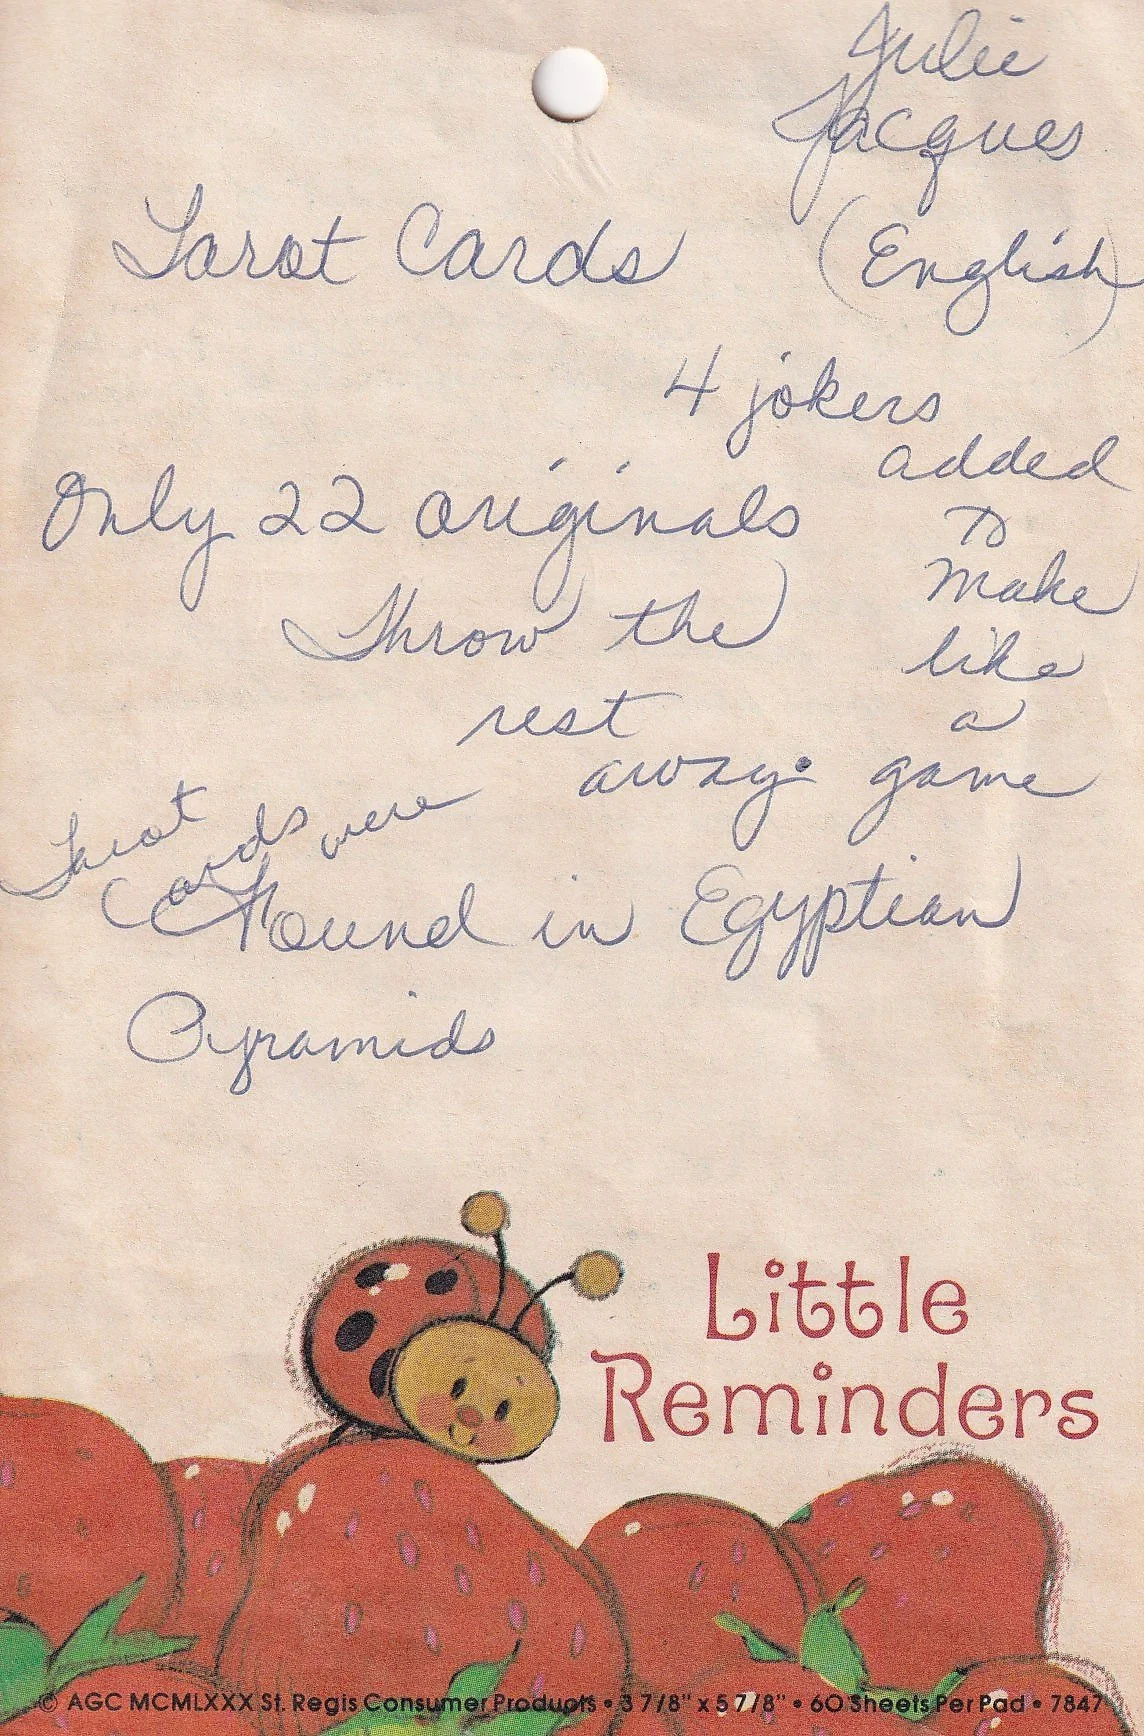 Julie
Jacques
(English)
Tarot Cards
4 jokers
added
to
make
like
a
game
Only 22 originals
Throw the
rest
away.
Tarot
Cards were
Found in Egyptian
Pyramids
Little
Reminders
© AGC MCMLXXX St. Regis Consumer Products • 3 7/8" x 5 7/8" • 60 Sheets Per Pad • 7847